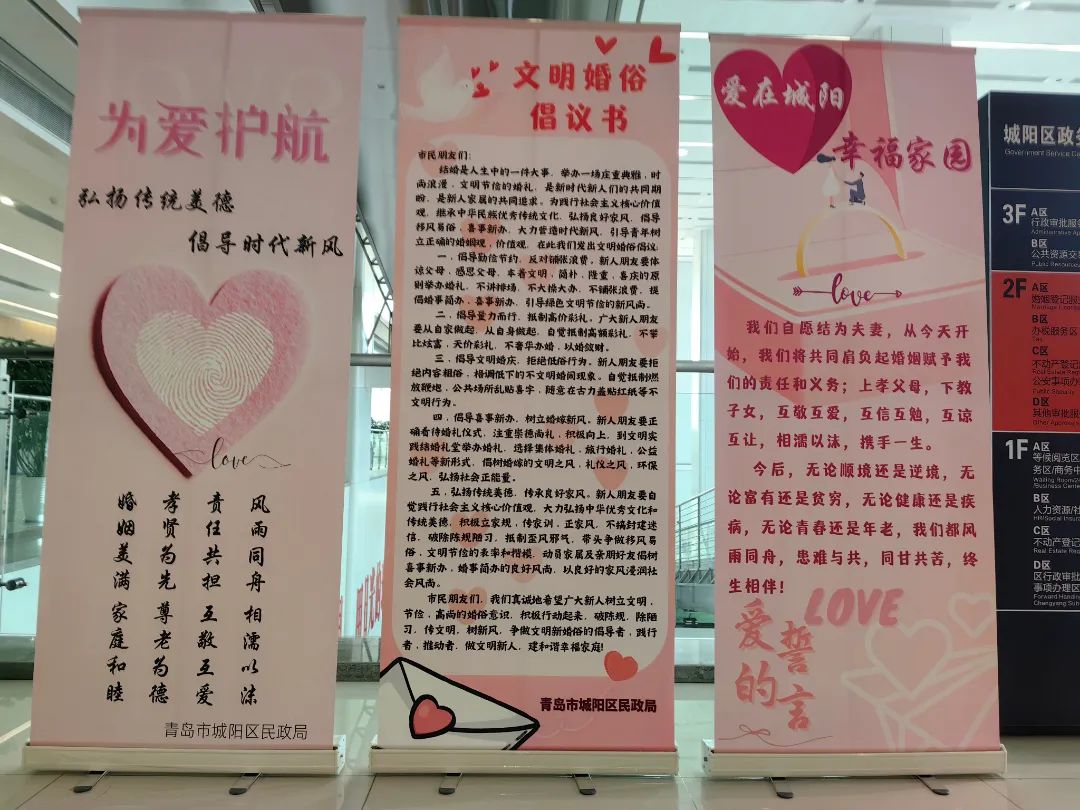 为爱护航
弘扬传统美德
倡导时代新风
love
婚姻美满 家庭和睦
孝贤为先 尊老为德
责任共担 互敬互爱
风雨同舟 相濡以沫
青岛市城阳区民政局
文明婚俗
倡议书
市民朋友们：
结婚是人生中的一件大事，举办一场庄重典雅，时
尚浪漫，文明节俭的婚礼，是新时代新人们的共同期
盼，是新人家属的共同追求。为践行社会主义核心价值
观，继承中华民族优秀传统文化，弘扬良好家风，倡导
移风易俗，喜事新办，大力营造时代新风，引导青年树
立正确的婚姻观，价值观，在此我们发出文明婚俗倡议：
一，倡导勤俭节约，反对铺张浪费。新人朋友要体
谅父母，感恩父母，本着文明，简朴，隆重，喜庆的原
则举办婚礼，不讲排场，不大操大办，不铺张浪费，提
倡婚事简办，喜事新办，引导绿色文明节俭的新风尚。
二，倡导量力而行，抵制高价彩礼。广大新人朋友
要从自家做起，从自身做起，自觉抵制高额彩礼，不攀
比炫富，天价彩礼，不奢华办婚，以婚敛财。
三，倡导文明婚庆，拒绝低俗行为。新人朋友要拒
绝内容粗俗，格调低下的不文明婚闹现象。自觉抵制燃
放鞭炮，公共场所乱贴喜字，随意在古力盖贴红纸等不
文明行为。
四，倡导喜事新办，树立婚嫁新风。新人朋友要正
确看待婚礼仪式，注重崇德尚礼，积极向上，到文明实
践结婚礼堂举办婚礼，选择集体婚礼，旅行婚礼，公益
婚礼等新形式，倡树婚嫁的文明之风，礼仪之风，环保
之风，弘扬社会正能量。
五，弘扬传统美德，传承良好家风。新人朋友要自
觉践行社会主义核心价值观，大力弘扬中华优秀文化和
传统美德，积极立家规，传家训，正家风，不搞封建迷
信，破除陈规陋习，抵制歪风邪气，带头争做移风易
俗，文明节俭的表率和楷模，动员家属及亲朋好友倡树
喜事新办，婚事简办的良好风尚，以良好的家风浸润社
会风尚。
市民朋友们，我们真诚地希望广大新人树立文明，
节俭，高尚的婚俗意识，积极行动起来，破陈规，除陋
习，传文明，树新风，争做文明新婚俗的倡导者，践行
者，推动者，做文明新人，建和谐幸福家庭！
青岛市城阳区民政局
爱在城阳
幸福家园
love
我们自愿结为夫妻，从今天开
始，我们将共同肩负起婚姻赋予我
们的责任和义务；上孝父母，下教
子女，互敬互爱，互信互勉，互谅
互让，相濡以沫，携手一生。
今后，无论顺境还是逆境，无
论富有还是贫穷，无论健康还是疾
病，无论青春还是年老，我们都风
雨同舟，患难与共，同甘共苦，终
生相伴！
LOVE
爱的
誓言
城阳区政务
Government Service Ce
3F
A区
行政审批服
B区
公共资源交
2F
A区
婚姻登记服
B区
办税服务区
Tax
C区
不动产登记
公安事项办
D区
其他审批服
1F
A区
等候阅览区
务区/商务中
B区
人力资源/社
C区
不动产登记
D区
区行政审批
事项办理区